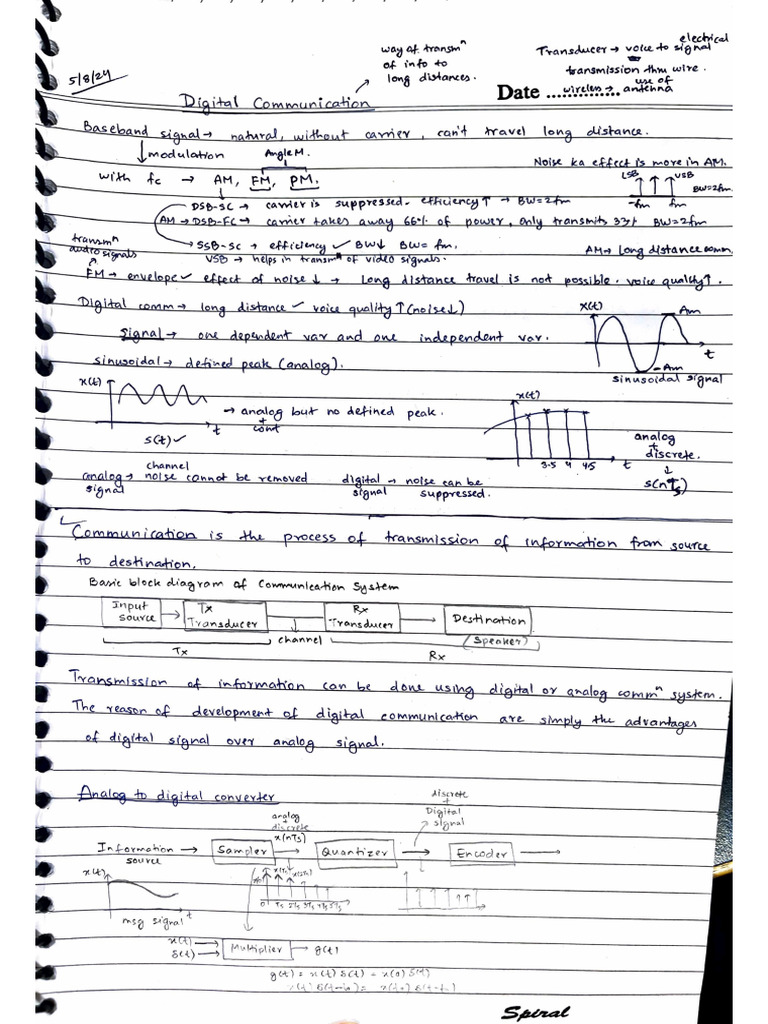 5/8/24
way of transmⁿ of info to long distances.
Transducer → voice to electrical signal
transmission thru wire.
wireless → use of antenna
Date ..............
Digital Communication
Baseband signal → natural, without carrier, can't travel long distance.
↓ modulation
Angle M.
Noise ka effect is more in AM.
with fc → AM, FM, PM.
LSB USB
BW=2fm
-fm fm
DSB-SC → carrier is suppressed. efficiency ↑ → BW=2fm
AM → DSB-FC → carrier takes away 66% of power, only transmits 33% BW=2fm
SSB-SC → efficiency ✓ BW↓ BW= fm.
AM → Long distance comm.
VSB → helps in transmⁿ of video signals.
transmⁿ audio signals
FM → envelope ✓ effect of noise ↓ → long distance travel is not possible. voice quality ↑.
Digital comm → long distance ✓ voice quality ↑ (noise↓)
Signal → one dependent var and one independent var.
x(t) Am
-Am t
sinusoidal signal
sinusoidal → defined peak (analog).
x(t)
t
s(t) ✓
→ analog but no defined peak.
+
cont
x(t)
3.5 4 4.5 t
analog
+
discrete.
↓
s(nTs)
analog signal → channel noise cannot be removed
digital signal → noise can be suppressed.
Communication is the process of transmission of information from source
to destination.
Basic block diagram of Communication System
Input source → Tx Transducer
Rx Transducer → Destination
channel
(Speaker)
Tx
Rx
Transmission of information can be done using digital or analog commⁿ system.
The reason of development of digital communication are simply the advantages
of digital signal over analog signal.
Analog to digital converter
analog
+
discrete
x(nTs)
discrete
+
Digital
signal
Information source → Sampler → Quantizer → Encoder →
x(t)
t
msg signal
x(Ts)
0 Ts 2Ts 3Ts 4Ts 5Ts
x(t) →
δ(t) →
Multiplier → g(t)
g(t) = x(t) δ(t) = x(0) δ(t)
Spiral